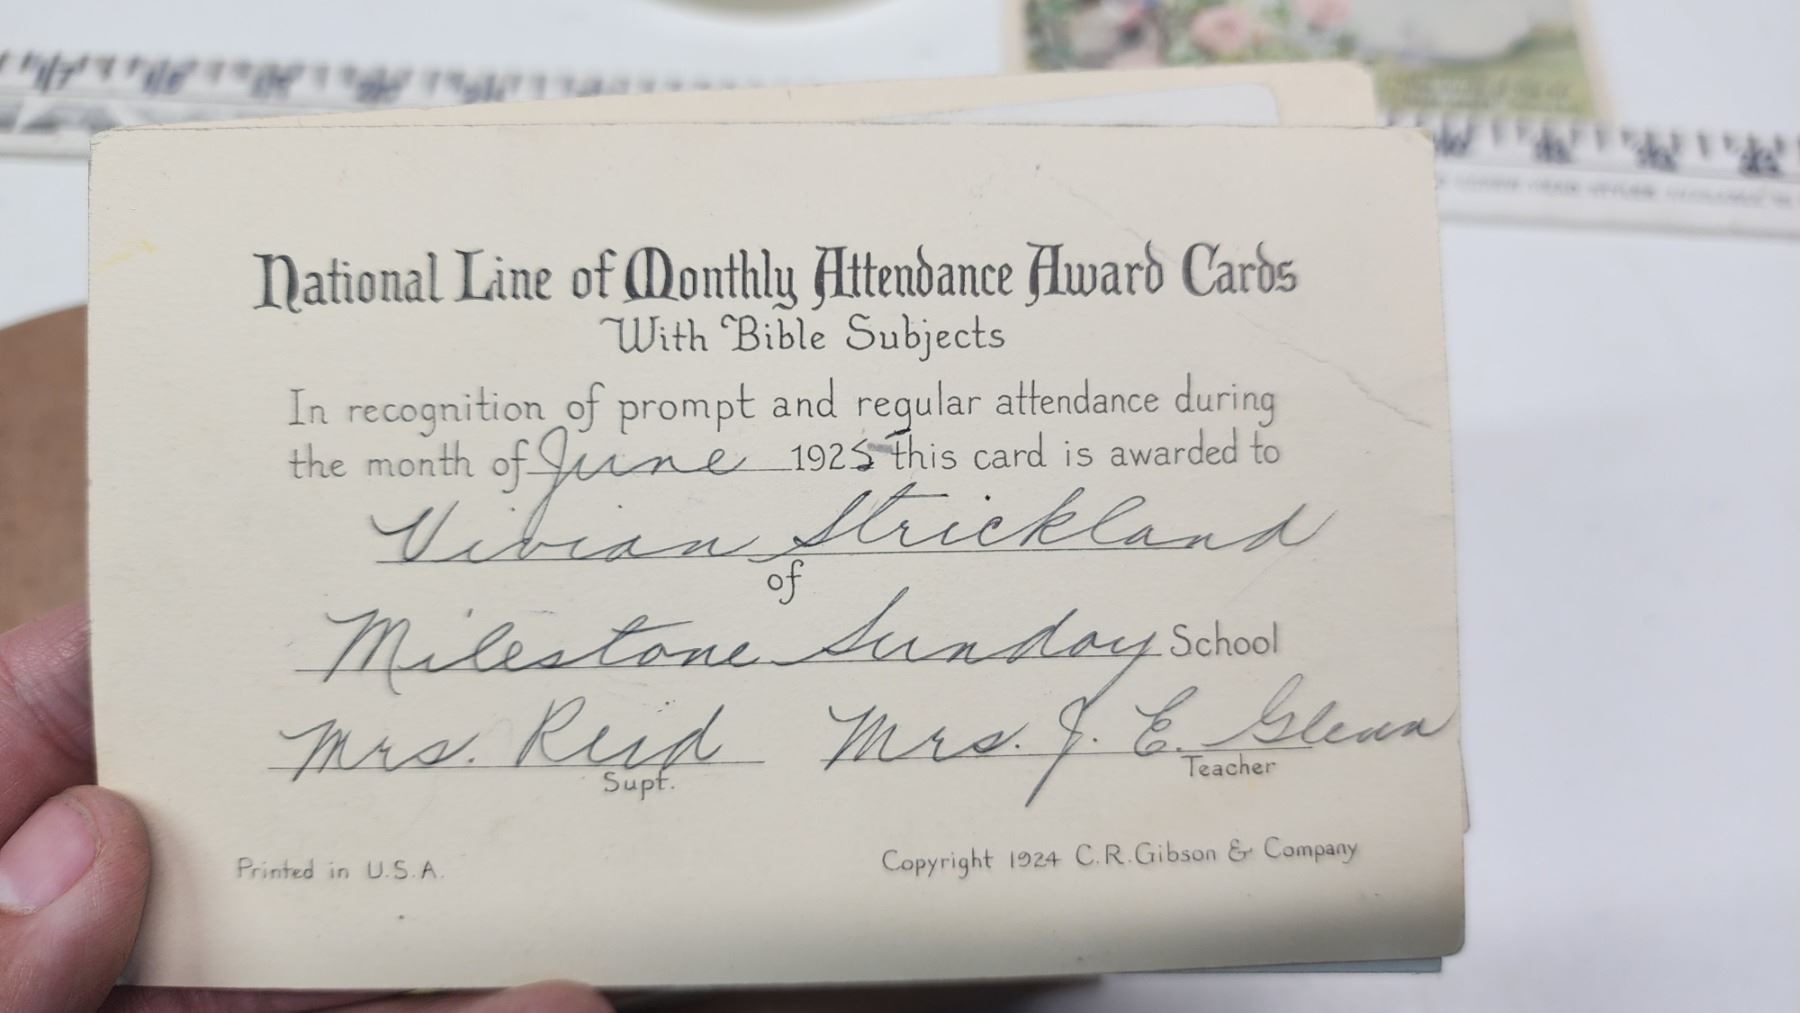 National Line of Monthly Attendance Award Cards
With Bible Subjects
In recognition of prompt and regular attendance during
the month of June 1925 this card is awarded to
Vivian Strickland
of
Milestone Sunday School
Mrs. Reid Mrs. J. E. Glenn
Supt. Teacher
Printed in U.S.A. Copyright 1924 C.R. Gibson & Company